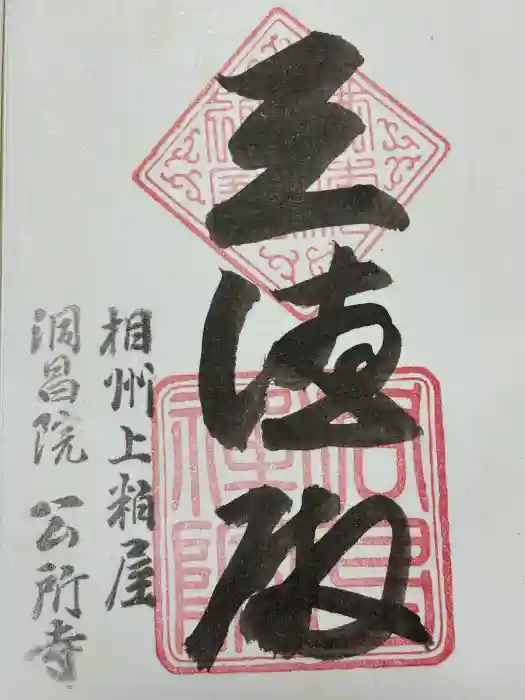 三徳殿
相州上粕屋
洞昌院 公所寺